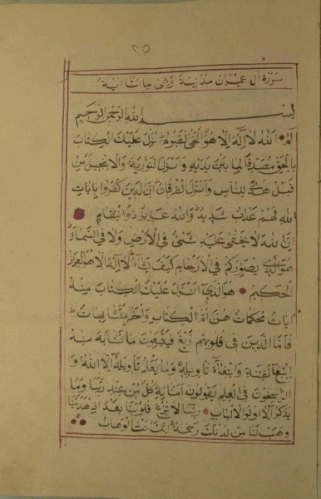 ٢٥
سورة ال عمران مدنية وهى مائتا اية
بسم الله الرحمن الرحيم
الم الله لا اله الا هو الحى القيوم نزل عليك الكتاب
بالحق مصدقا لما بين يديه وانزل التورية والانجيل من
قبل هدى للناس وانزل الفرقان ان الذين كفروا بايات
الله لهم عذاب شديد والله عزيز ذو انتقام
ان الله لا يخفى عليه شىء فى الارض ولا فى السماء
هو الذى يصوركم فى الارحام كيف يشاء لا اله الا هو العزيز
الحكيم هو الذى انزل عليك الكتاب منه
ايات محكمات هن ام الكتاب واخر متشابهات
فاما الذين فى قلوبهم زيغ فيتبعون ما تشابه منه
ابتغاء الفتنة وابتغاء تاويله وما يعلم تاويله الا الله و
الراسخون فى العلم يقولون امنا به كل من عند ربنا وما
يذكر الا اولو الالباب ربنا لا تزغ قلوبنا بعد اذ هديتنا
وهب لنا من لدنك رحمة انك انت الوهاب